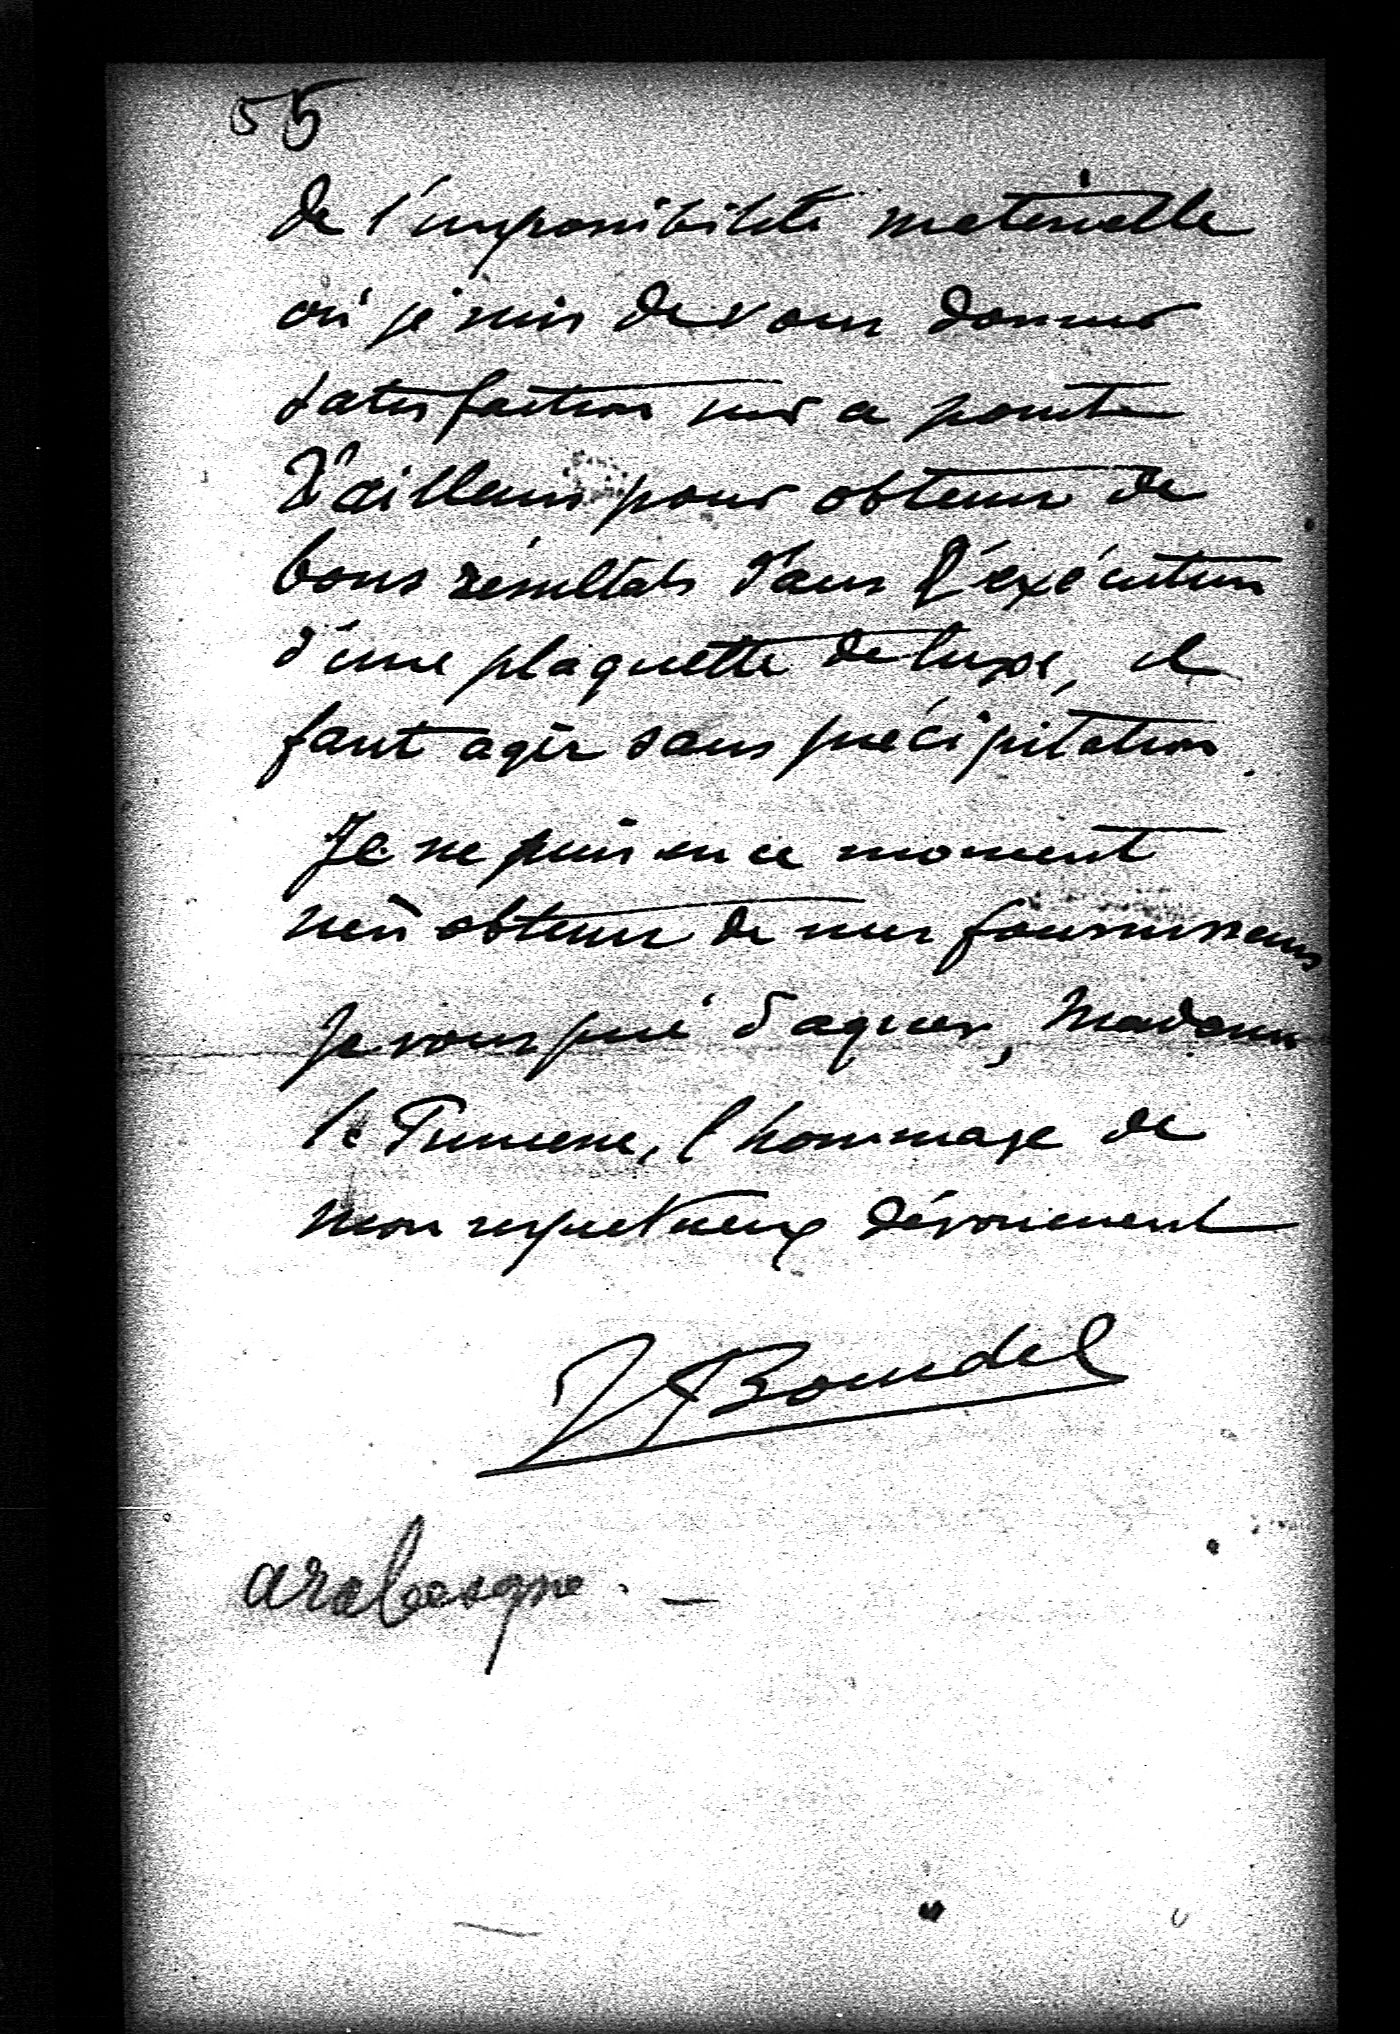 55
de l'impossibilité matérielle
où je suis de vous donner
satisfaction sur ce point
D'ailleurs pour obtenir de
bons résultats dans l'exécution
d'une plaquette de luxe, il
faut agir sans précipitation.
Je ne puis en ce moment
rien obtenir de mes fournisseurs
Je vous prie d'agréer, Madame
la Princesse, l'hommage de
mon respectueux dévouement
arabesque. —